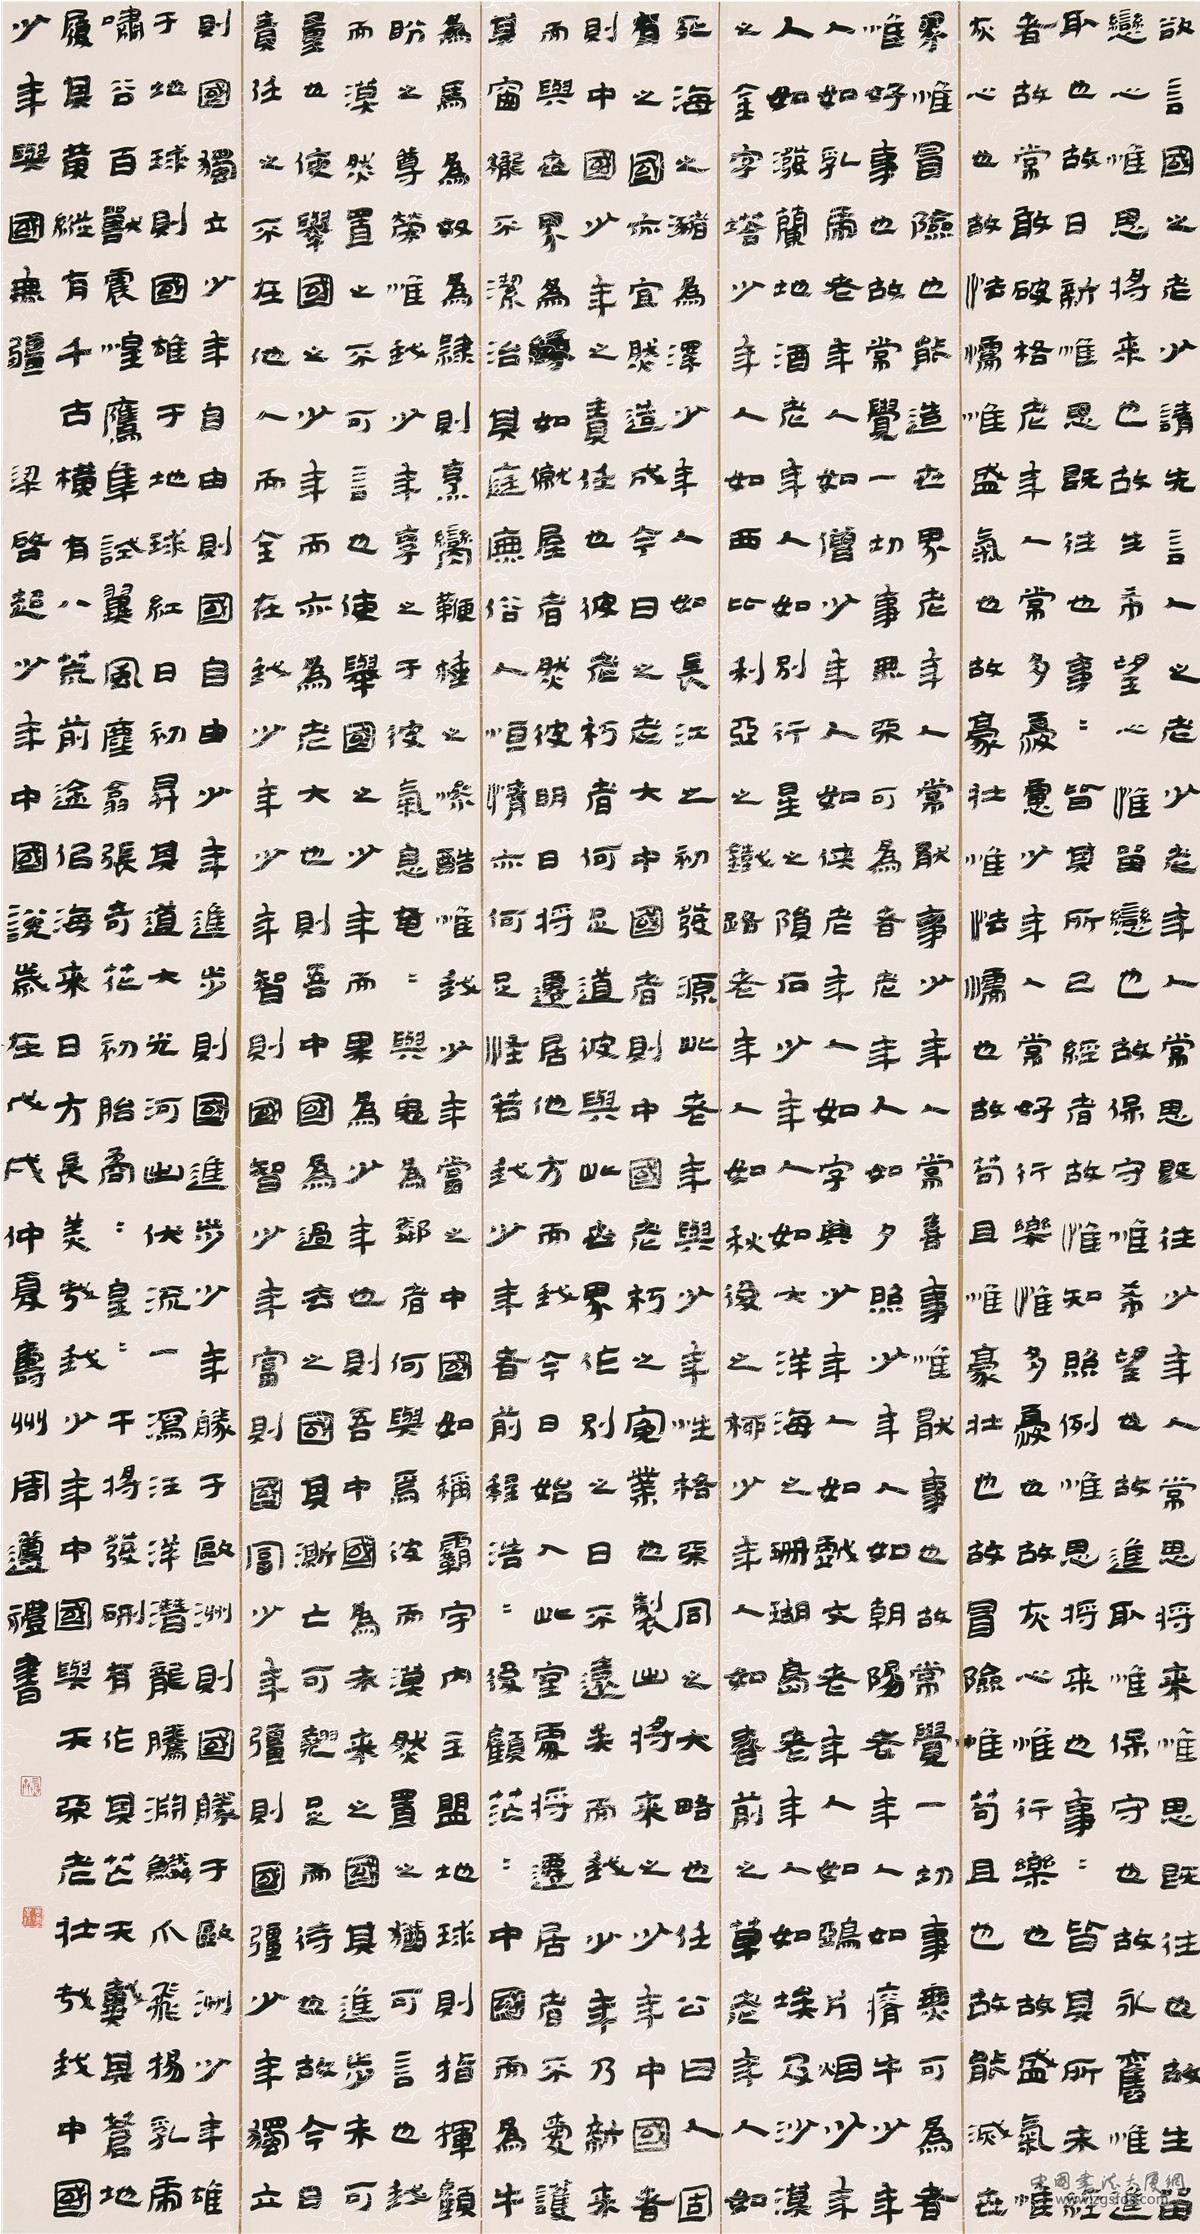 欲言國之老少請先言人之老少老年人常思既往少年人常思將來惟思既往也故生留
戀心惟思將來也故生希望心惟留戀也故保守惟希望也故進取惟保守也故永舊惟進
取也故日新惟思既往也事〻皆其所已經者故惟知照例惟思將來也事〻皆其所未經
者故常敢破格老年人常多憂慮少年人常好行樂惟多憂也故灰心惟行樂也故盛氣惟
灰心也故怯懦惟盛氣也故豪壯惟怯懦也故苟且惟豪壯也故冒險惟苟且也故能滅世
界惟冒險也能造世界老年人常厭事少年人常喜事惟厭事也故常覺一切事無可為者
惟好事也故常覺一切事無不可為者老年人如夕照少年人如朝陽老年人如瘠牛少年
人如乳虎老年人如僧少年人如俠老年人如字典少年人如戲文老年人如鴉片烟少年
人如潑蘭地酒老年人如別行星之隕石少年人如大洋海之珊瑚島老年人如埃及沙漠
之金字塔少年人如西比利亞之鐵路老年人如秋後之柳少年人如春前之草老年人如
死海之瀦為澤少年人如長江之初發源此老年與少年性格不同之大略也任公曰人固
有之國亦宜然造成今日之老大中國者則中國老朽之冤業也製出將來之少年中國者
則中國少年之責任也彼老朽者何足道彼與此世界作別之日不遠矣而我少年乃新來
而與世界為緣如僦屋者然彼明日將遷居他方而我今日始入此室處將遷居者不愛護
其窗櫳不潔治其庭廡俗人恒情亦何足怪若我少年者前程浩〻後顧茫〻中國而為牛
為馬為奴為隸則烹臠鞭箠之慘酷惟我少年當之中國如稱霸宇內主盟地球則指揮顧
盼之尊榮惟我少年享之于彼氣息奄〻與鬼為鄰者何與焉彼而漠然置之猶可言也我
而漠然置之不可言也使舉國之少年而果為少年也則吾中國為未來之國其進步未可
量也使舉國之少年而亦為老大也則吾中國為過去之國其漸亡可翹足而待也故今日
責任之不在他人而全在我少年少年智則國智少年富則國富少年彊則國彊少年獨立
則國獨立少年自由則國自由少年進步則國進步少年勝于歐洲則國勝于歐洲少年雄
于地球則國雄于地球紅日初昇其道大光河出伏流一瀉汪洋潛龍騰淵鱗爪飛揚乳虎
嘯谷百獸震惶鷹隼試翼風塵翕張奇花初胎矞〻皇〻干將發硎有作其芒天戴其蒼地
履其黃縱有千古橫有八荒前途似海來日方長美哉我少年中國與天不老壯哉我中國
少年與國無疆 梁啓超少年中國說歲在戊戌仲夏壽州周遵禮書
中国书法大厦网
www.zgsfds.com